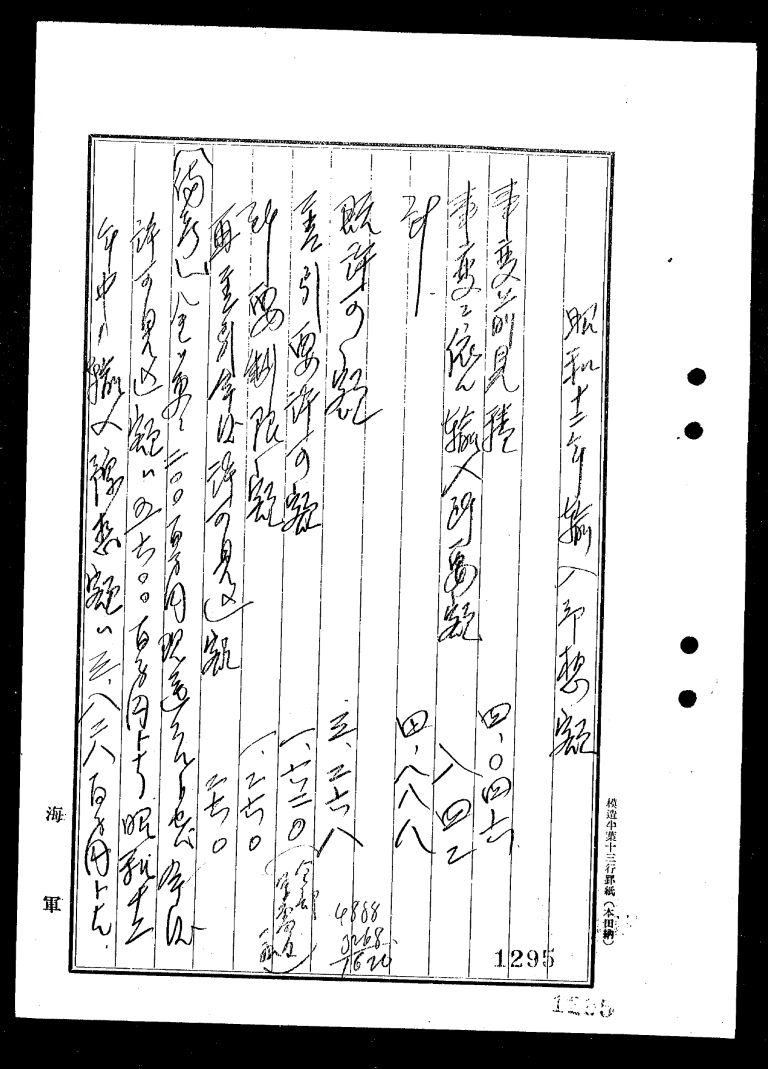 昭和十二年輸入予想額
事変以前見積 四、〇四六
事変ニ依ル輸入所要額 八四二
計 四、八八八
既許可額 三、二六八
差引要許可額 一、六二〇
所要制限額 一、二六〇
再差引今後許可見込額 三六〇
(備考) 二〇〇百万円 今後
許可見込額ハ五六〇百万円トナリ昭和十二
年中ノ輸入予想額ハ三、八二八百万円トナル
4888
3268
1620
1295
1295
模造半葉十三行罫紙(本田納)
海軍